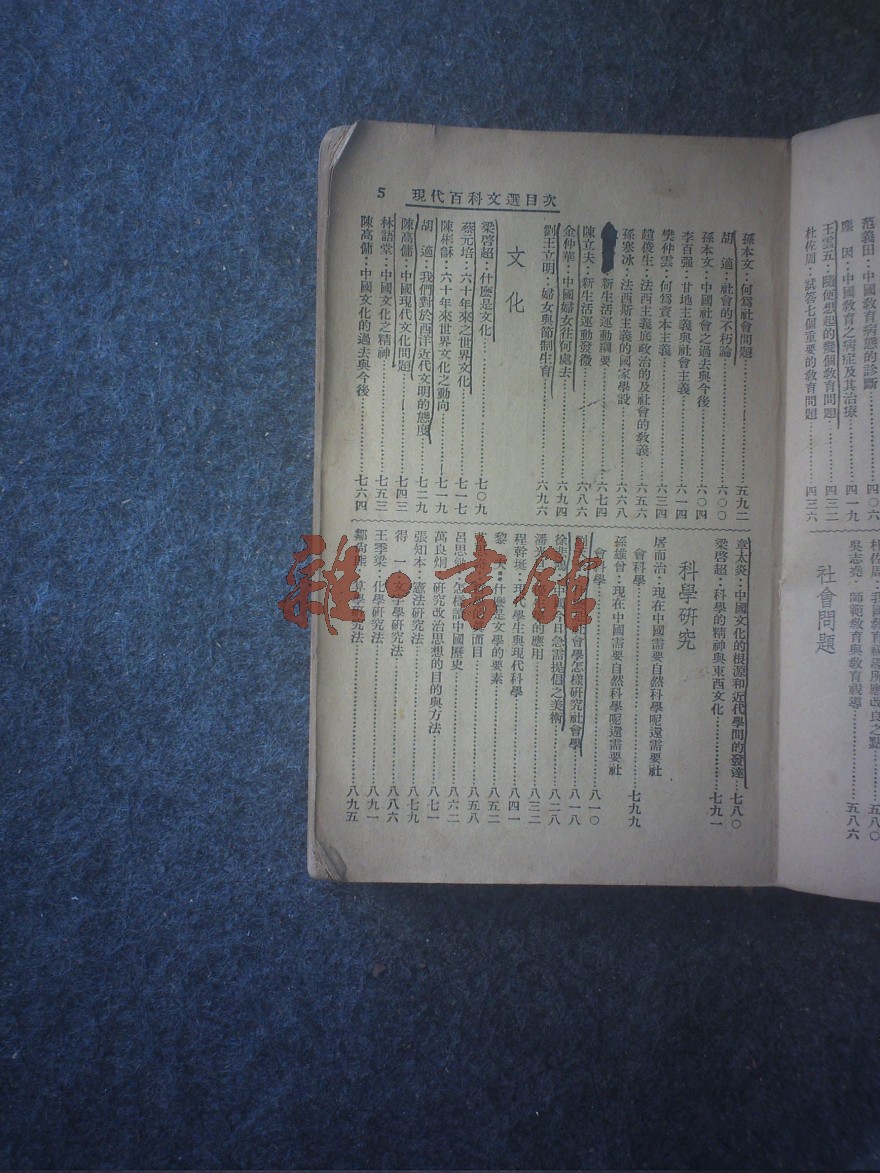 范義田：中國教育病態的診斷……四〇六
王雲五：隨便想起的幾個教育問題……四三二
杜佐周：試答七個重要的教育問題……四三六
社會問題
吳志堯：師範教育與教育視導……五八六
現代百科文選目次 5
孫本文：何爲社會問題……五九二
胡　適：社會的不朽論……六〇〇
孫本文：中國社會之過去與今後……六〇四
李百强：甘地主義與社會主義……六一四
樊仲雲：何爲資本主義……六三四
趙俊生：法西主義底政治的及社會的教義……六五六
孫寒冰：法西斯主義的國家學設……六六八
新生活運動綱要……六七四
陳立夫：新生活運動發微……六八六
金仲華：中國婦女往何處去……六九四
劉王立明：婦女與節制生育……六九六
文化
梁啓超：什麼是文化……七〇九
蔡元培：六十年來之世界文化……七一七
陳彬龢：六十年來世界文化之動向……七一九
胡　適：我們對於西洋近代文明的態度……七二九
陳高傭：中國現代文化問題……七四三
林語堂：中國文化之精神……七五三
陳高傭：中國文化的過去與今後……七六四
章太炎：中國文化的根源和近代學問的發達……七八〇
梁啓超：科學的精神與東西文化……七九一
科學研究
屠而治：現在中國需要自然科學呢還需要社
會科學……七九九
孫雄曾：現在中國需要自然科學呢還需要社
會科學……八一〇
社會學怎樣研究社會學……八一八
今日急需提倡之美術……八二八
的應用……八三二
程幹珽：現代學生與現代科學……八四一
什麼是文學的要素……八五二
面目……八五八
呂思勉：怎樣讀中國歷史……八六二
萬良炯：研究政治思想的目的與方法……八七一
張知本：憲法研究法……八七九
得　一：文字學研究法……八八六
王季梁：化學研究法……八九一
鄒尚熊：算學研究法……八九五
雜·書館